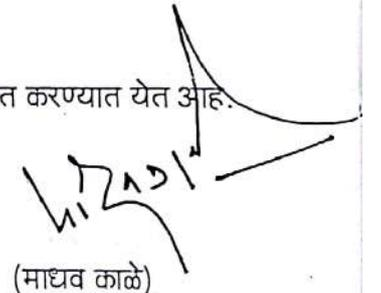 त करण्यात येत आहे.
(माधव काळे)